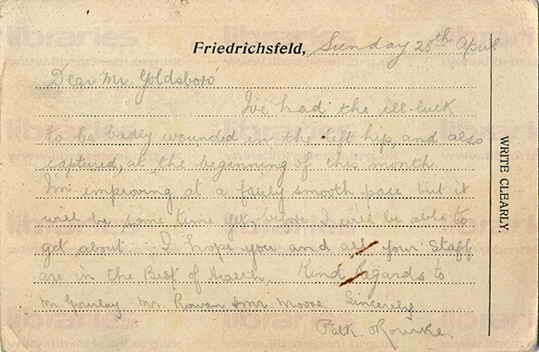 Friedrichsfeld, Sunday 28th April
Dear Mr. Goldsboro'
I've had the ill-luck
to be badly wounded in the left hip, and also
captured, at the beginning of this month.
I'm improving at a fairly smooth pace but it
will be some time yet before I will be able to
get about. I hope you and all your Staff
are in the Best of Health. Kind Regards to
Mr Gourley Mr. Rowan & Mr. Moore Sincerely
Patk. O'Rourke.
WRITE CLEARLY.